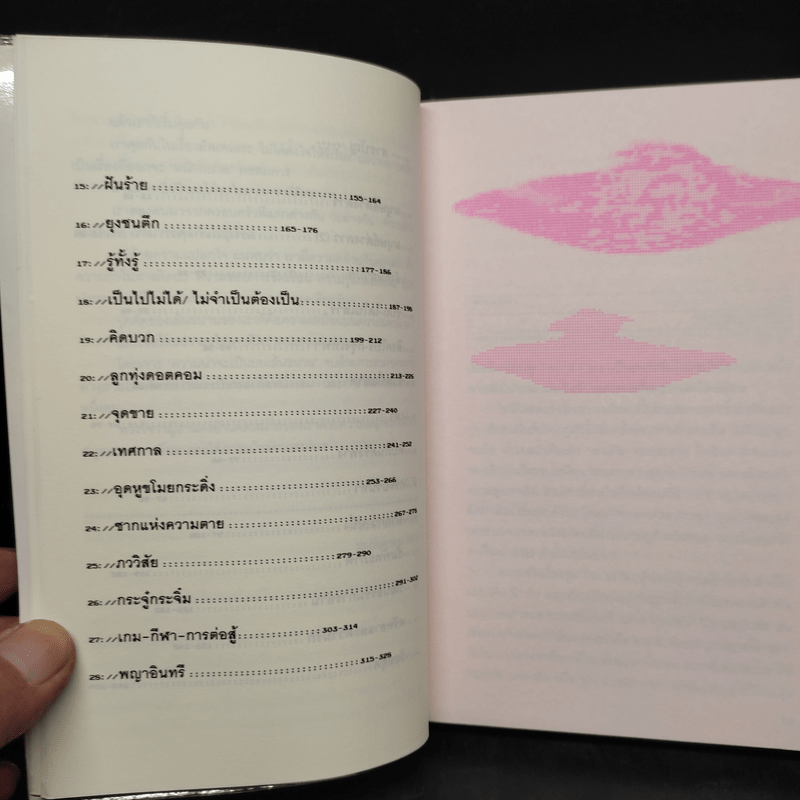 15: //ฝันร้าย ::::::::::::::::::::::::::::::155-164
16: //ยุงชนตึก ::::::::::::::::::165-176
17: //รู้ทั้งรู้ :::::::::::::::::::::::::::::::::177-186
18: //เป็นไปไม่ได้/ ไม่จำเป็นต้องเป็น:::::::::::::187-198
19: //คิดบวก ::::::::::::::::::::::::::::::199-212
20: //ลูกทุ่งดอตคอม ::::::::::::::::::::::::::::213-226
21: //จุดขาย ::::::::::::::::::::::::::::::::227-240
22: //เทศกาล ::::::::::::::::::::::::::::::::::241-252
23: //อุดหูขโมยกระดิ่ง ::::::::::::::::::::::253-266
24: //ซากแห่งความตาย :::::::::::::::::::::::::267-278
25: //ภววิสัย :::::::::::::::::::::::::::279-290
26: //กระจู๋กระจิ๋ม ::::::::::::::::::::::::::::::291-302
27: //เกม-กีฬา-การต่อสู้::::::::::::303-314
28: //พญาอินทรี :::::::::::::::::::::::::315-328